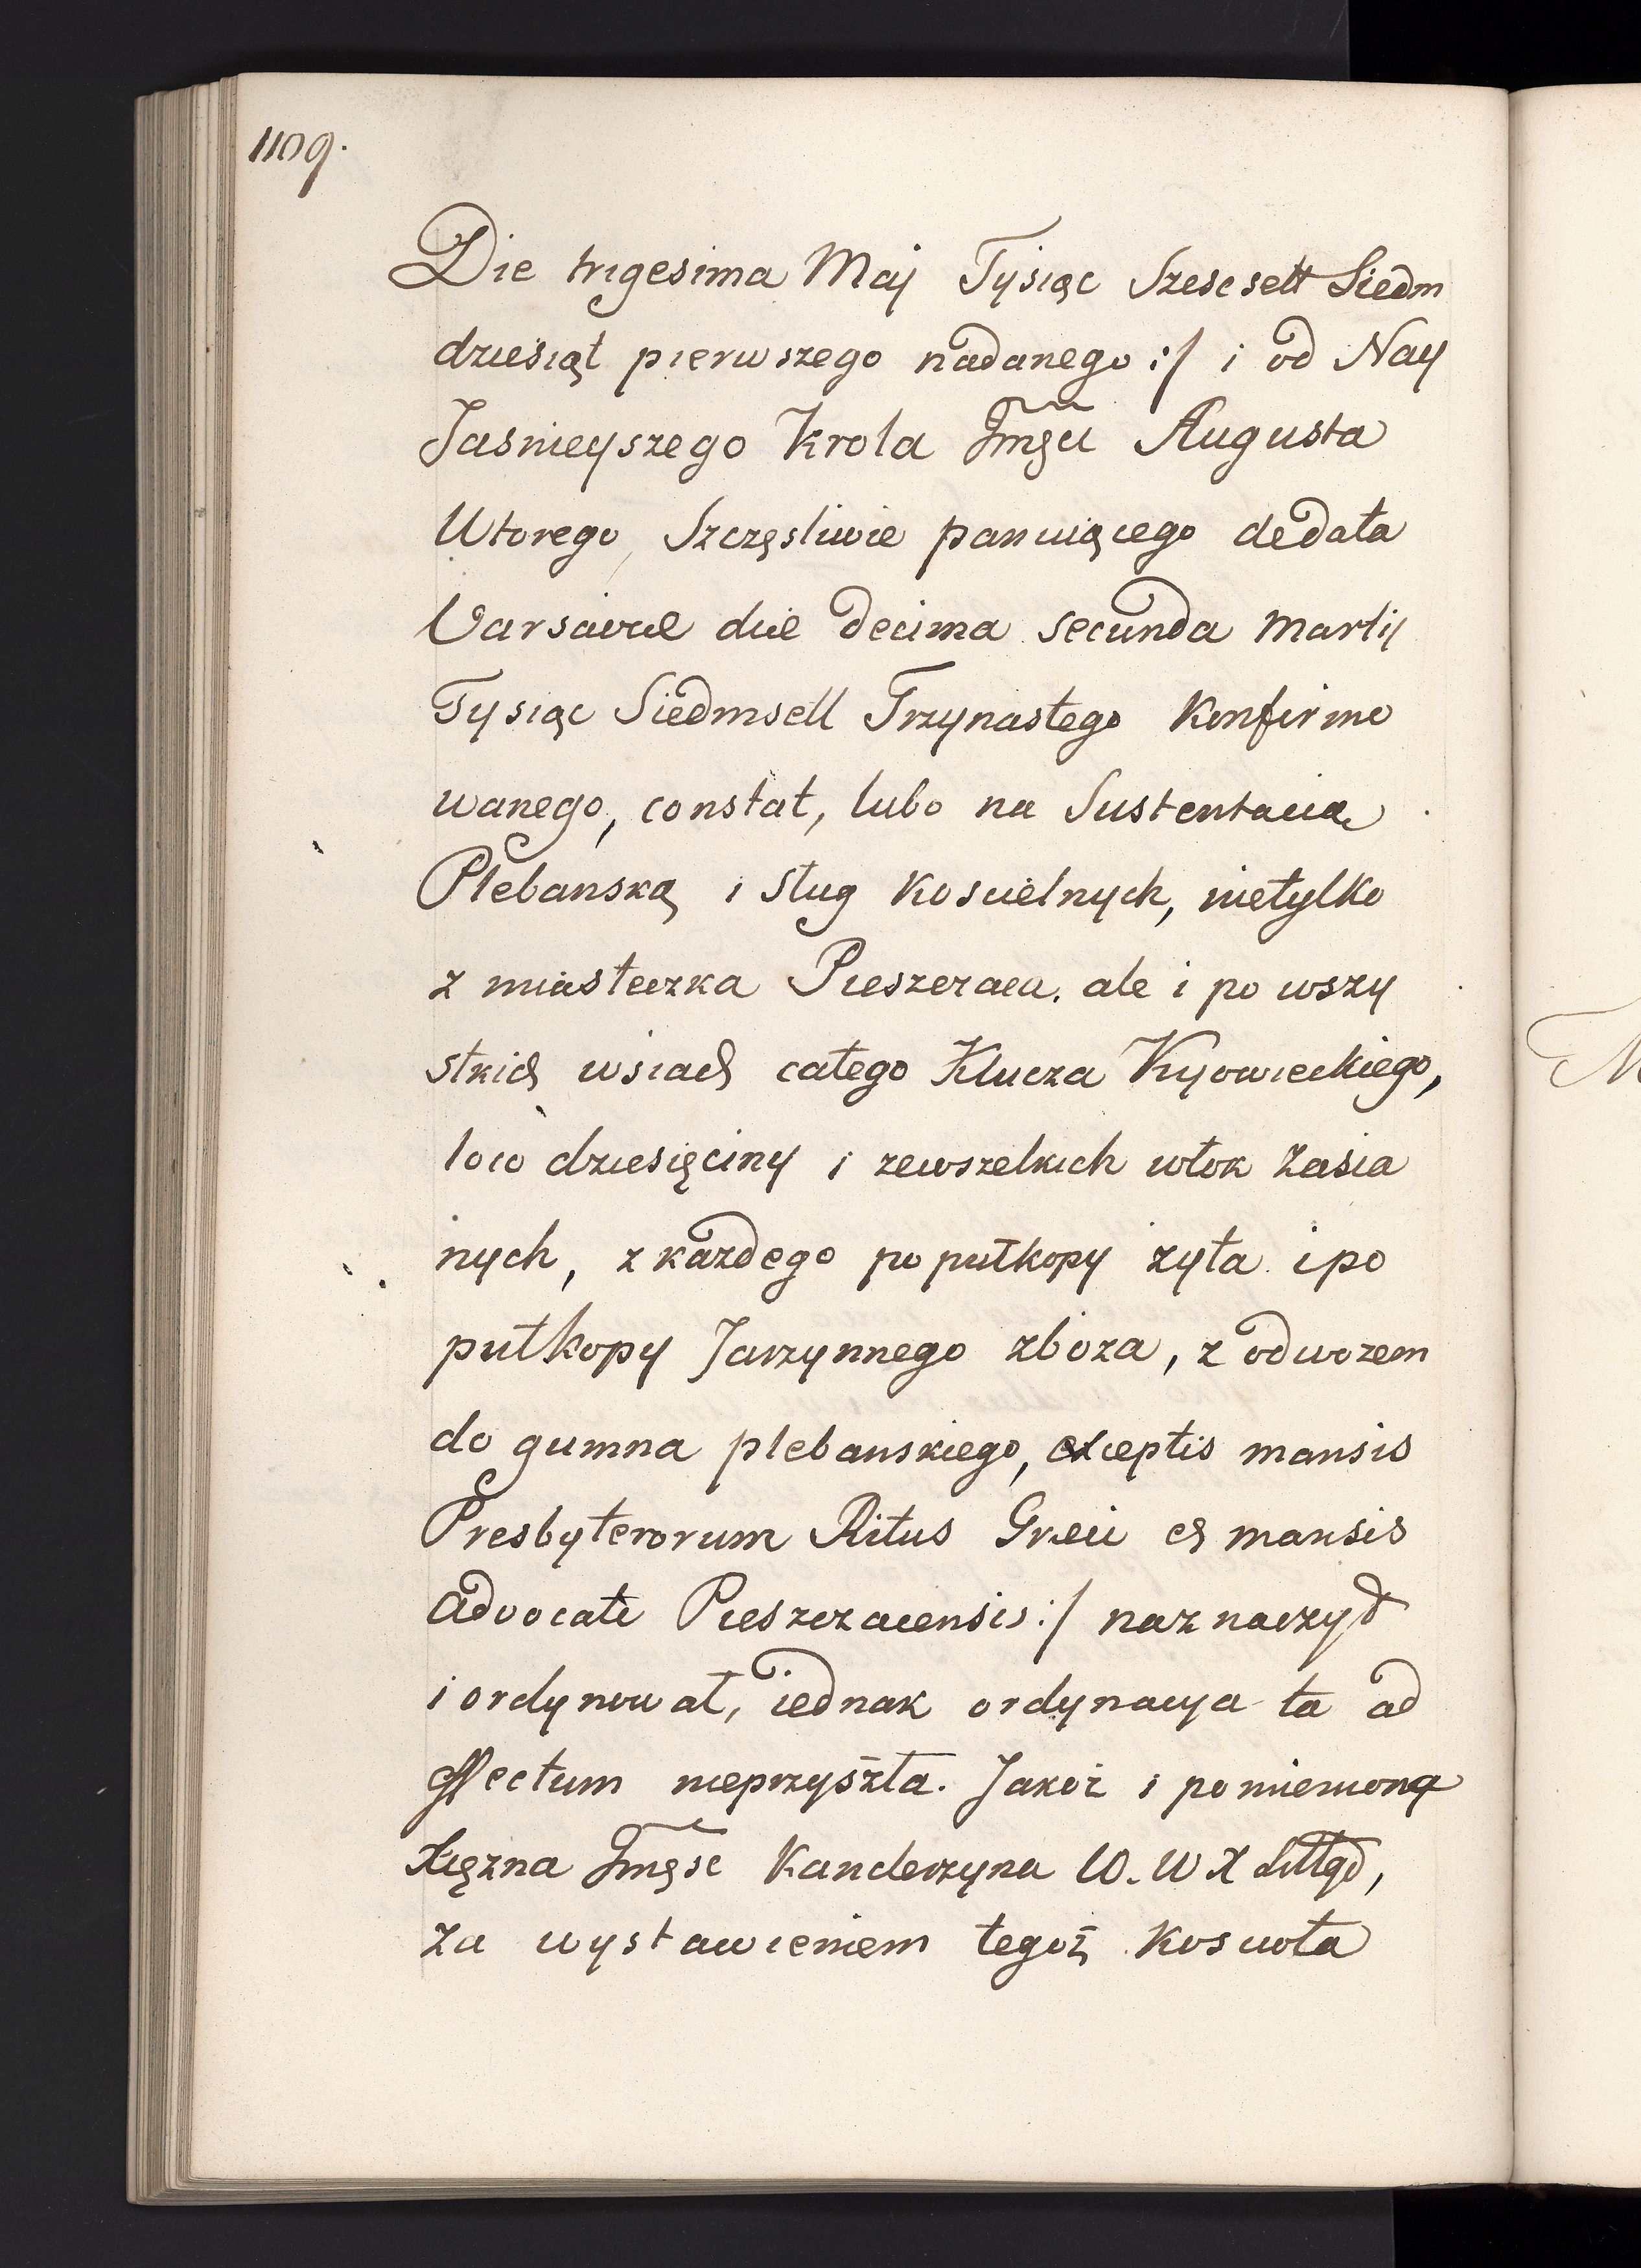 1109.
Die trigesima Maj Tysiąc Szescsett Siedm
dziesiąt pierwszego nadanego :/ i od Nay
Jasnieyszego Krola Jmści Augusta
Wtorego, Szczęsliwie panuiącego de data
Varsaviae die decima secunda Martij
Tysiąc Siedmsett Trzynastego Konfirmo
wanego, constat, lubo na Sustentacią
Plebanską i sług Koscielnych, nietylko
z miasteczka Pieszczaca. ale i po wszy
stkich wsiach całego Klucza Kyowieckiego,
loco dziesięciny i zewszelkich włok Zasia
nych, z kazdego po pułkopy zyta i po
pułkopy Jarzynnego zboza, z odwozem
do gumna plebanskiego, exceptis mansis
Presbyterorum Ritus Graeci et mansis
advocati Pieszczacensis :/ naznaczył
i ordynował, iednak ordynacya ta ad
effectum nieprzyszła. Jakoż i pomieniona
Xiężna Jmęsc Kanclerzyna W. W X Littgo,
Za wystawieniem tegoż Koscioła